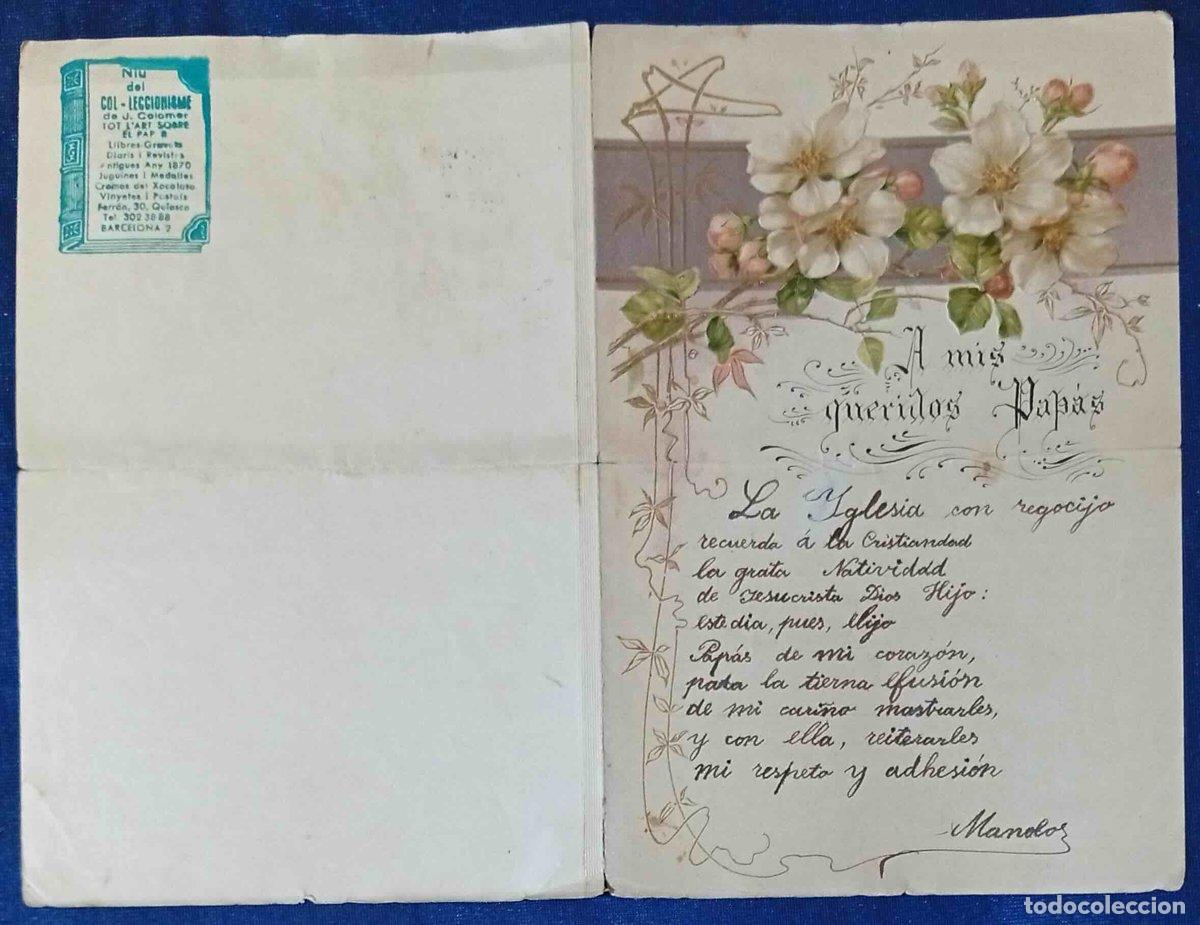 Niu
del
COL-LECCIONISME
de J. Colomer
TOT L'ART SOBRE
EL PAPER
Llibres-Gravats
Diaris i Revistes
Antigues Any 1870
Juguines i Medalles
Cromos del Xocolata
Vinyetes i Postals
Ferrán, 30, Quiosco
Tel. 302 38 88
BARCELONA 2
A mis
queridos Papás
La Yglesia con regocijo
recuerda á la Cristiandad
la grata Natividdd
de Jesucrista Dios Hijo:
este dia, pues, elijo
Papás de mi corazón,
para la tierna efusión
de mi cariño mastrarles,
y con ella, reiterarles
mi respeto y adhesión
Manolo
todocoleccion